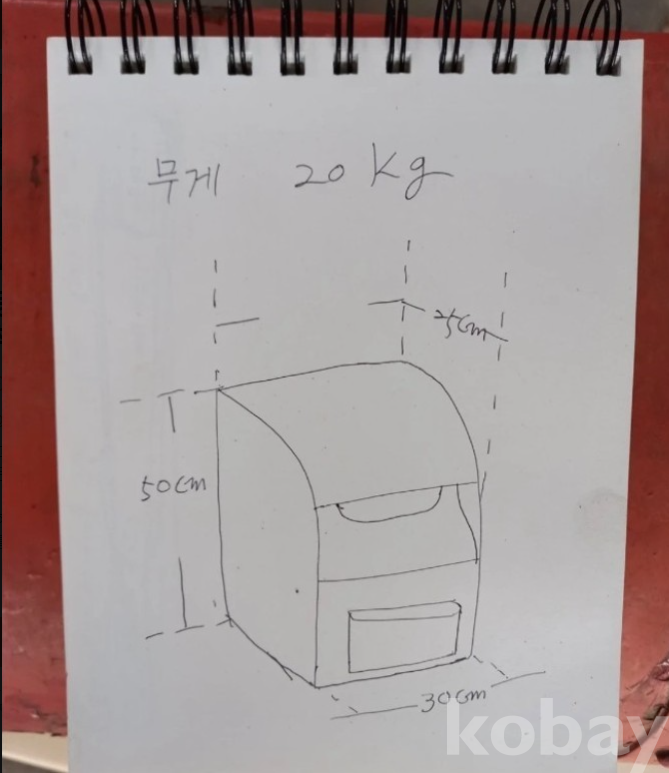 무게 20 Kg
25cm
50cm
30cm
kobay